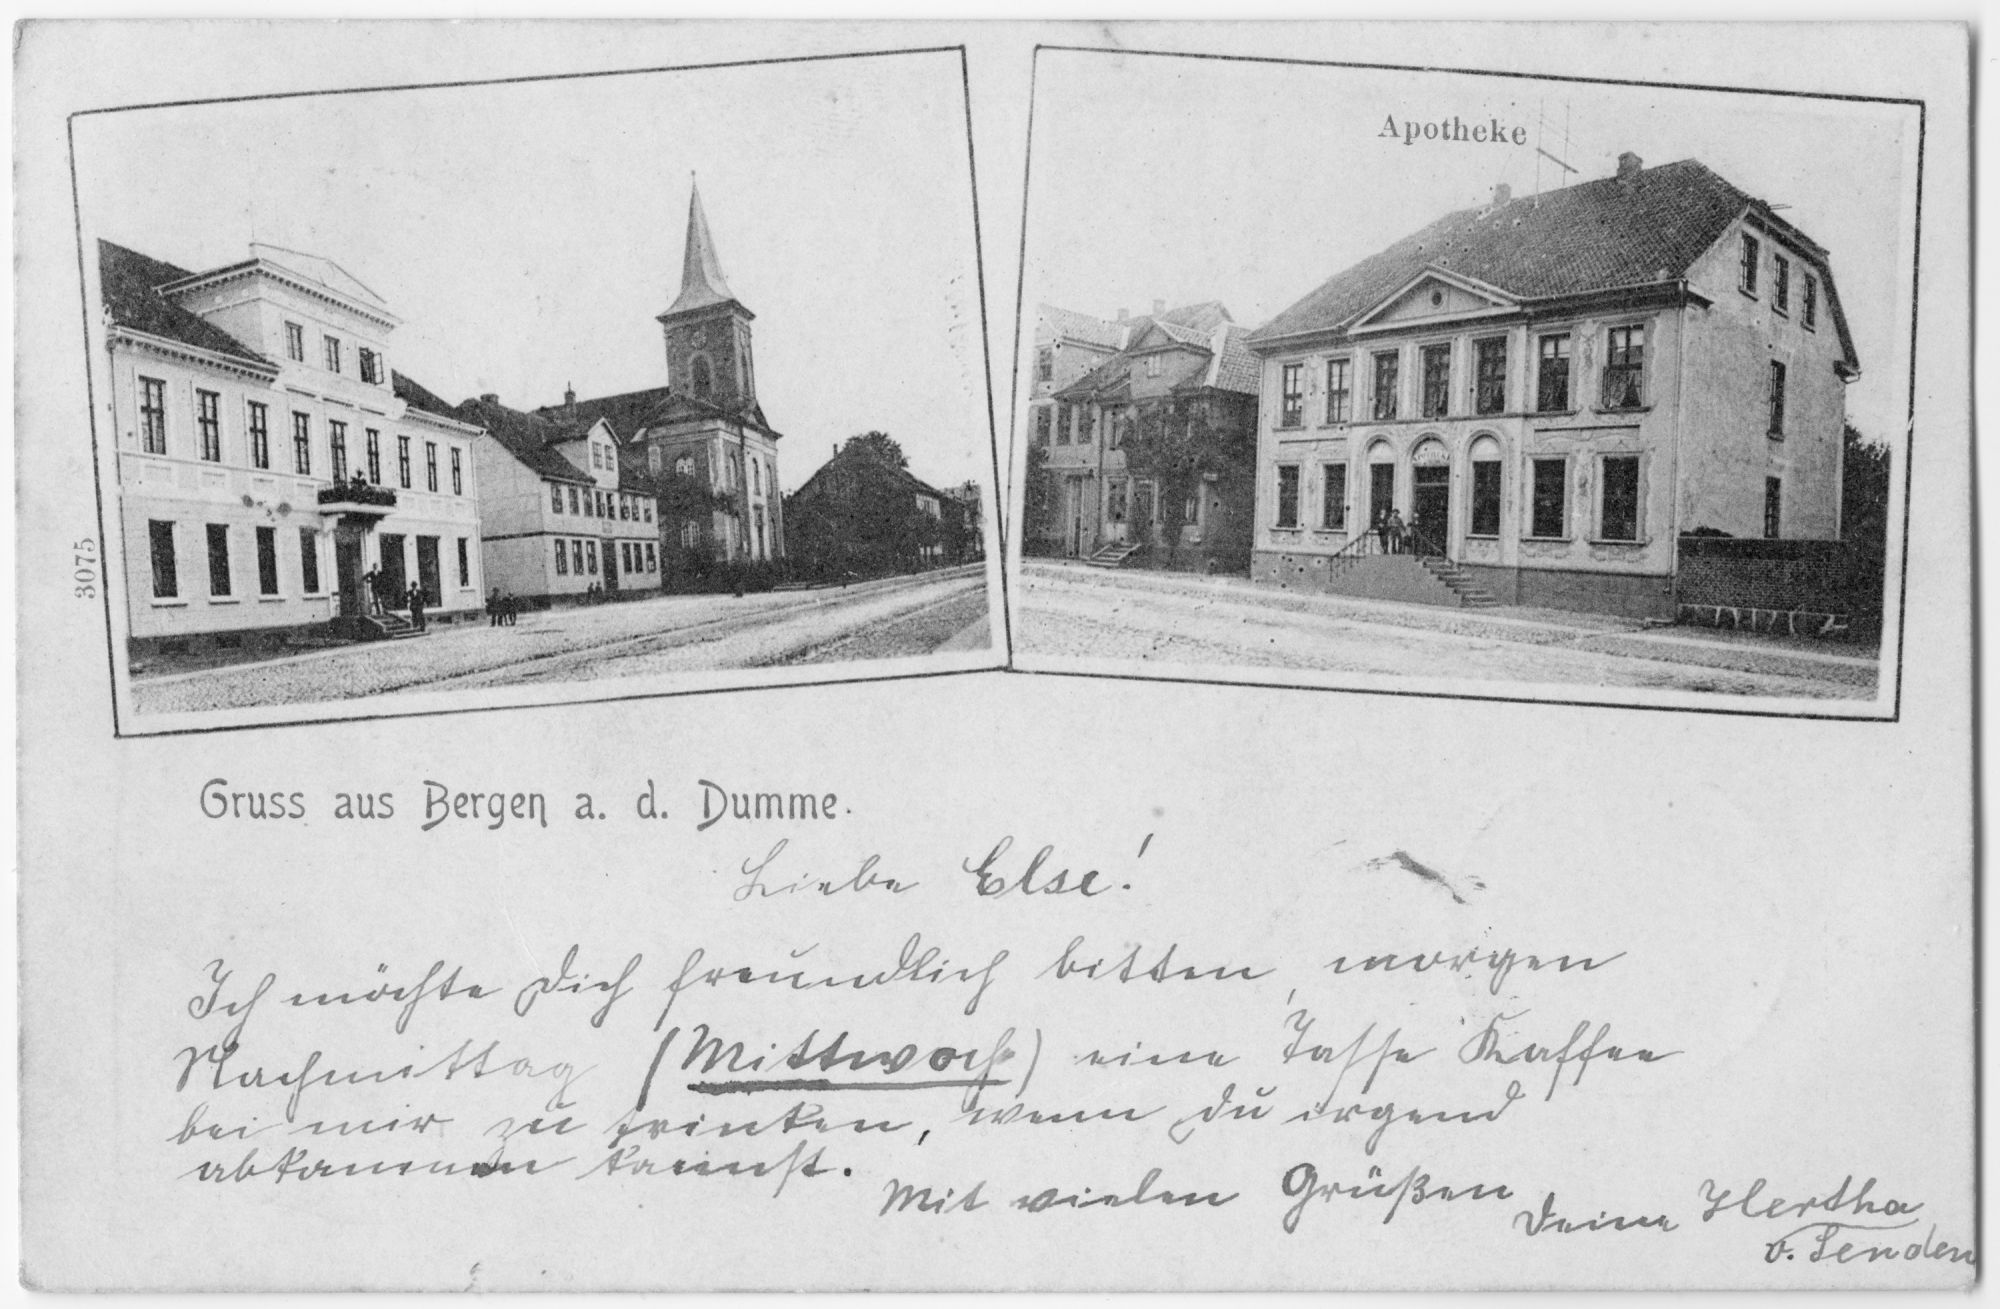 Apotheke
APOTHEKE
3075
Gruss aus Bergen a. d. Dumme.
Liebe Else!
Ich möchte Dich freundlich bitten, morgen
Nachmittag (Mittwoch) eine Tasse Kaffee
bei mir zu trinken, wenn Du irgend
abkommen kannst.
Mit vielen Grüßen
Deine Hertha
v. Senden